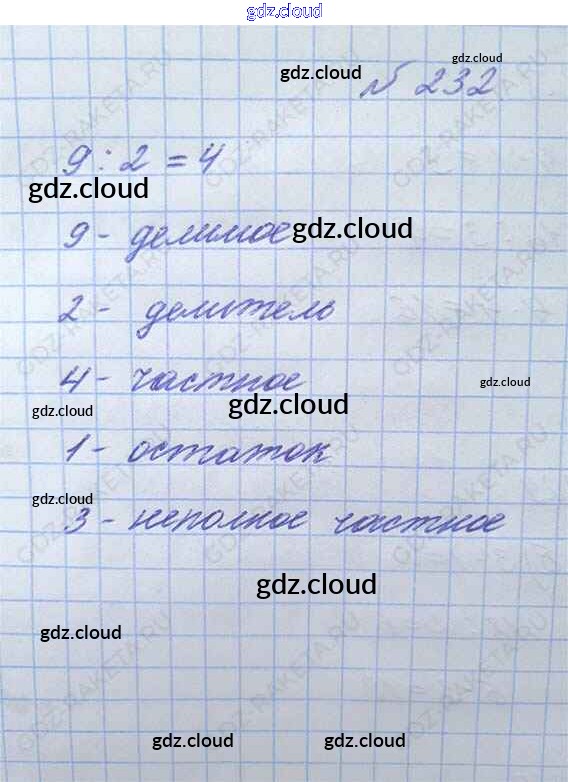 gdz.cloud
gdz.cloud
gdz.cloud
№ 232
9 : 2 = 4
gdz.cloud
9 - делимое
gdz.cloud
2 - делитель
4 - частное
gdz.cloud
gdz.cloud
gdz.cloud
1 - остаток
gdz.cloud
3 - неполное частное
gdz.cloud
gdz.cloud
gdz.cloud
gdz.cloud